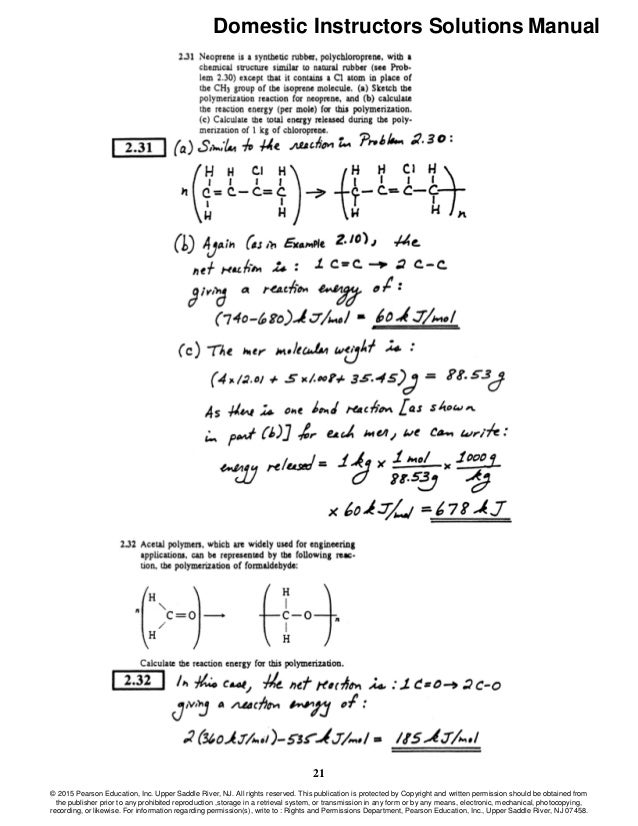 Domestic Instructors Solutions Manual
2.31 Neoprene is a synthetic rubber, polychloroprene, with a
chemical structure similar to natural rubber (see Prob-
lem 2.30) except that it contains a Cl atom in place of
the CH3 group of the isoprene molecule. (a) Sketch the
polymerization reaction for neoprene, and (b) calculate
the reaction energy (per mole) for this polymerization.
(c) Calculate the total energy released during the poly-
merization of 1 kg of chloroprene.
2.31 (a) Similar to the reaction in Problem 2.30:
H H Cl H → H H Cl H
n C = C – C = C → C – C = C – C
H H H H n
(b) Again (as in Example 2.10), the
net reaction is : 1 C=C → 2 C–C
giving a reaction energy of :
(740–680) kJ/mol = 60 kJ/mol
(c) The mer molecular weight is :
(4 x 12.01 + 5 x 1.008 + 35.45) g = 88.53 g
As there is one bond reaction [as shown
in part (b)] for each mer, we can write:
energy released = 1 kg x 1 mol / 88.53g x 1000 g / kg
x 60 kJ/mol = 678 kJ
2.32 Acetal polymers, which are widely used for engineering
applications, can be represented by the following reac-
tion, the polymerization of formaldehyde:
H H
n C=O → –C–O– n
H H
Calculate the reaction energy for this polymerization.
2.32 In this case, the net reaction is : 1 C=O → 2 C–O
giving a reaction energy of :
2(360 kJ/mol) – 535 kJ/mol = 185 kJ/mol
21
© 2015 Pearson Education, Inc. Upper Saddle River, NJ. All rights reserved. This publication is protected by Copyright and written permission should be obtained from
the publisher prior to any prohibited reproduction ,storage in a retrieval system, or transmission in any form or by any means, electronic, mechanical, photocopying,
recording, or likewise. For information regarding permission(s), write to : Rights and Permissions Department, Pearson Education, Inc., Upper Saddle River, NJ 07458.